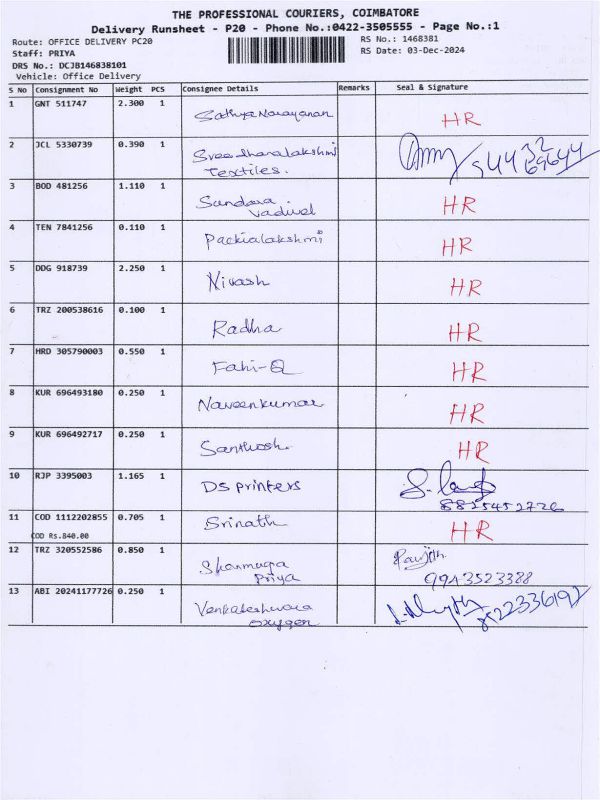 THE PROFESSIONAL COURIERS, COIMBATORE
Delivery Runsheet - P20 - Phone No.:0422-3505555 - Page No.:1
Route: OFFICE DELIVERY PC20
Staff: PRIYA
DRS No.: DCJB146838101
Vehicle: Office Delivery
RS No.: 1468381
RS Date: 03-Dec-2024
S No Consignment No Weight PCS Consignee Details Remarks Seal & Signature
1 GNT 511747 2.300 1 Sathya Narayanan HR
2 JCL 5330739 0.390 1 Sree Dhanalakshmi
Textiles.
3 BOD 481256 1.110 1 Sundara HR
Vadivel
4 TEN 7841256 0.110 1 Packialakshmi HR
5 DDG 918739 2.250 1 Nivash HR
6 TRZ 200538616 0.100 1 Radha HR
7 HRD 305790003 0.550 1 Fahi-Q HR
8 KUR 696493180 0.250 1 Naveenkumar HR
9 KUR 696492717 0.250 1 Santhosh. HR
10 RJP 3395003 1.165 1 DS printers
8825452726
11 COD 1112202855 0.705 1 Srinath HR
COD Rs.840.00
12 TRZ 320552586 0.850 1 Shanmuga Ranjith
Priya 9943523388
13 ABI 20241177726 0.250 1 Venkateshwara
oxygen